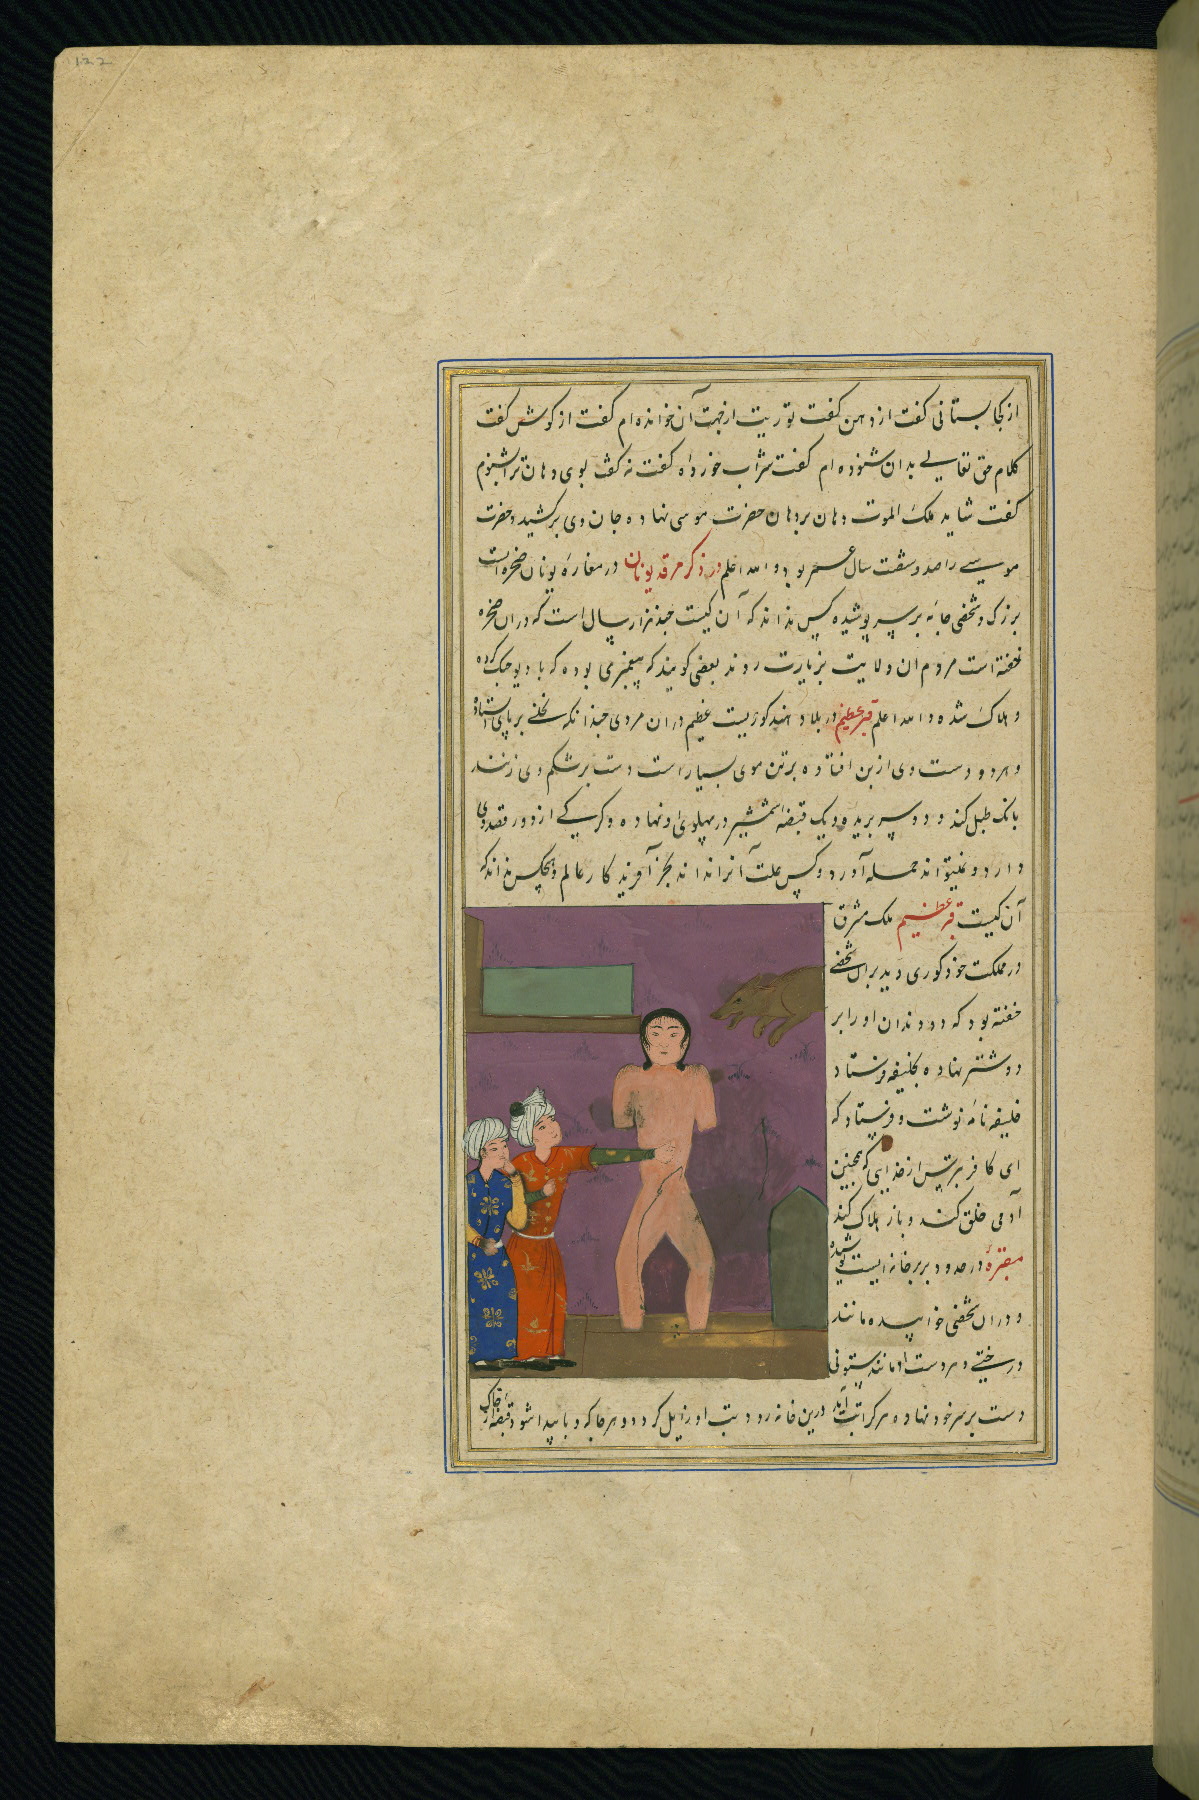 122
از کجا بستانی گفت از دهن گفت توریت از جهت آن خوانده‌ام گفت از گوش گفت
کلام حق تعالی بدان شنوده‌ام گفت شراب خورده‌اه گفت نه گفت بوی دهانت را بشنوم
گفت شاید ملک الموت دهان بر دهان حضرت موسی نهاده جان وی برکشید و حضرت
موسی را صد و شصت سال عمر بود و الله اعلم در ذکر مرقد یونان در مغاره یونان صخره است
بزرگ و شخصی جامه بر سر پوشیده کس نداند که آن کیست چند هزار سال است که در ان صخره
خفته است مردم ان ولایت بزیارت روند بعضی گویند که پیغمبری بوده که با دیو جنک کرده
و هلاک شده و الله اعلم قبر عظیم در بلاد هند گوریست عظیم در ان مردی چندانکه نخلی بر پای استاده
و هر دو دست وی از بن افتاده بر تن موی بسیار است دست بر شکم وی زنند
بانک طبل کند و دو سر بریده و یک قبضه شمشیر در پهلوی او نهاده و گرگی از دور قصد وی
دارد و نمیتواند حمله آورد و کس علت آنرا نداند بجز آفریدکار عالم و هیچکس نداند که
آن کیست قبر عظیم ملک مشرق
در مملکت خود گوری دید بران شخصی
خفته بود که دو دندان او را بر
دو شتر نهاده بخلیفه فرستاد
خلیفه نامه نوشت و فرستاد که
ای کافر بترس از خدایی که چنین
آدمی خلق کند و باز هلاک کند
مقبره در حدود بربر خانه ایست پوشیده
و در ان شخصی خوابیده مانند
درختی و هر دست او مانند ستونی
دست بر سر خود نهاده هر کرا تب آید درین خانه رود تب او زایل گردد و هر جا که وبا پیدا شود قبضه از خاک